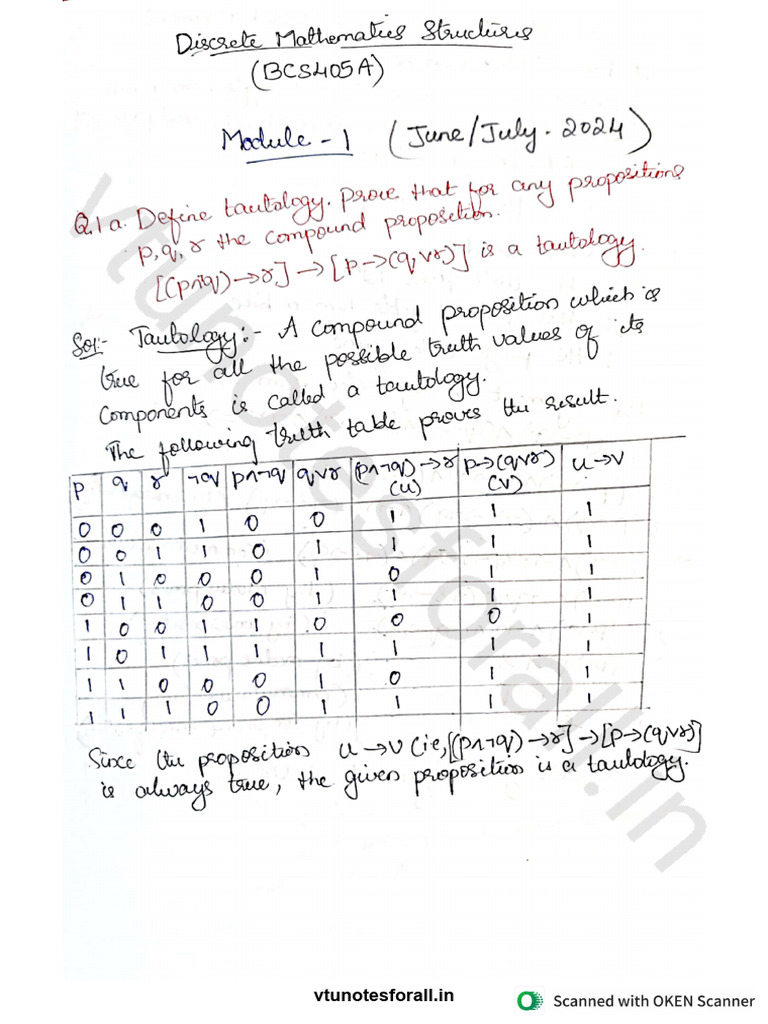 Discrete Mathematics Structures
(BCS405A)
Module - 1 (June/July. 2024)
Q.1 a. Define tautology. Prove that for any propositions
p, q, r the compound proposition.
[(p∧¬q)→r]→[p→(q∨r)] is a tautology.
Sol:- Tautology:- A compound proposition which is
true for all the possible truth values of its
components is called a tautology.
The following truth table proves the result.
p q r ¬q p∧¬q q∨r (p∧¬q)→r (u) p→(q∨r) (v) u→v
0 0 0 1 0 0 1 1 1
0 0 1 1 0 1 1 1 1
0 1 0 0 0 1 0 1 1
0 1 1 0 0 1 1 1 1
1 0 0 1 1 0 0 0 1
1 0 1 1 1 1 1 1 1
1 1 0 0 0 1 0 1 1
1 1 1 0 0 1 1 1 1
Since the proposition u→v (ie, [(p∧¬q)→r]→[p→(q∨r)]
is always true, the given proposition is a tautology.
vtunotesforall.in
vtunotesforall.in
Scanned with OKEN Scanner